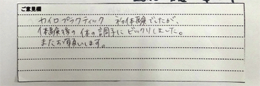 ご意見欄
カイロプラクティック 初体験でしたが、
体験後の体の調子にビックリしました。
またお願いします。